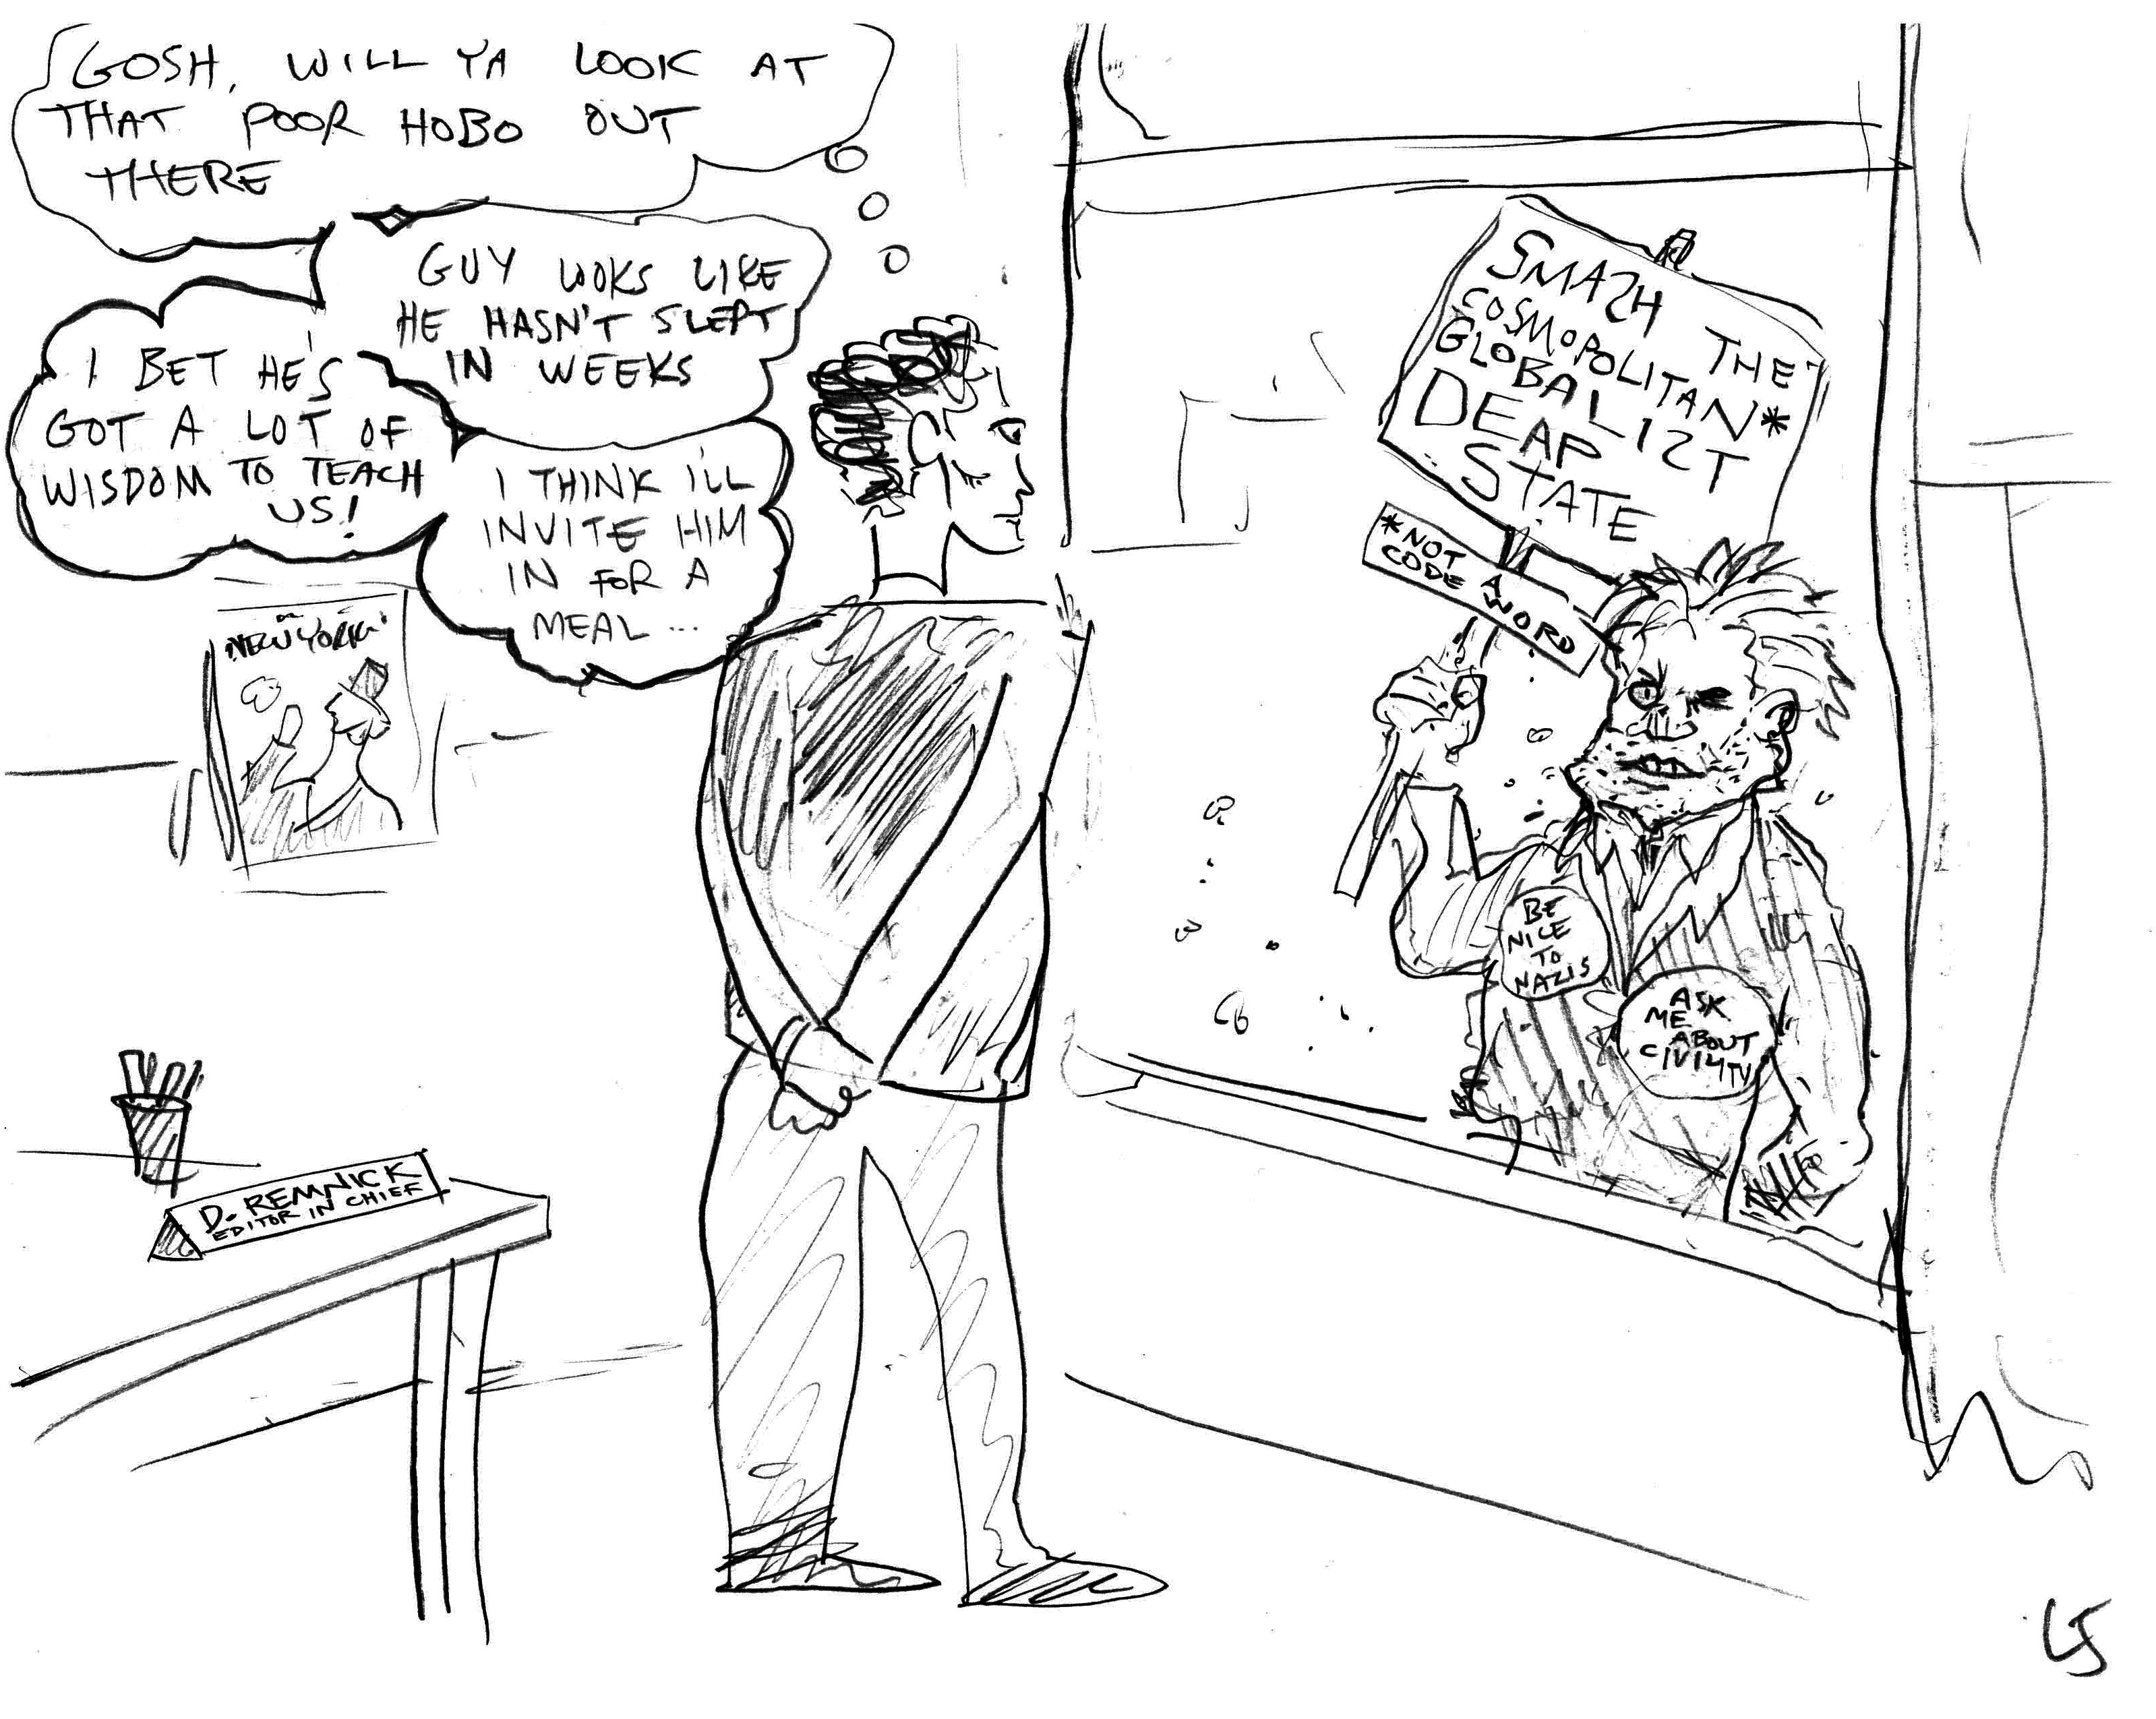 GOSH, WILL YA LOOK AT
THAT POOR HOBO OUT
THERE
GUY LOOKS LIKE
HE HASN'T SLEPT
IN WEEKS
I BET HE'S
GOT A LOT OF
WISDOM TO TEACH
US!
I THINK I'LL
INVITE HIM
IN FOR A
MEAL...
NEW YORKER
D. REMNICK
EDITOR IN CHIEF
SMASH THE
COSMOPOLITAN*
GLOBALIST
DEAP
STATE
*NOT A
CODE WORD
BE
NICE
TO
NAZIS
ASK
ME
ABOUT
CIVILITY
LS